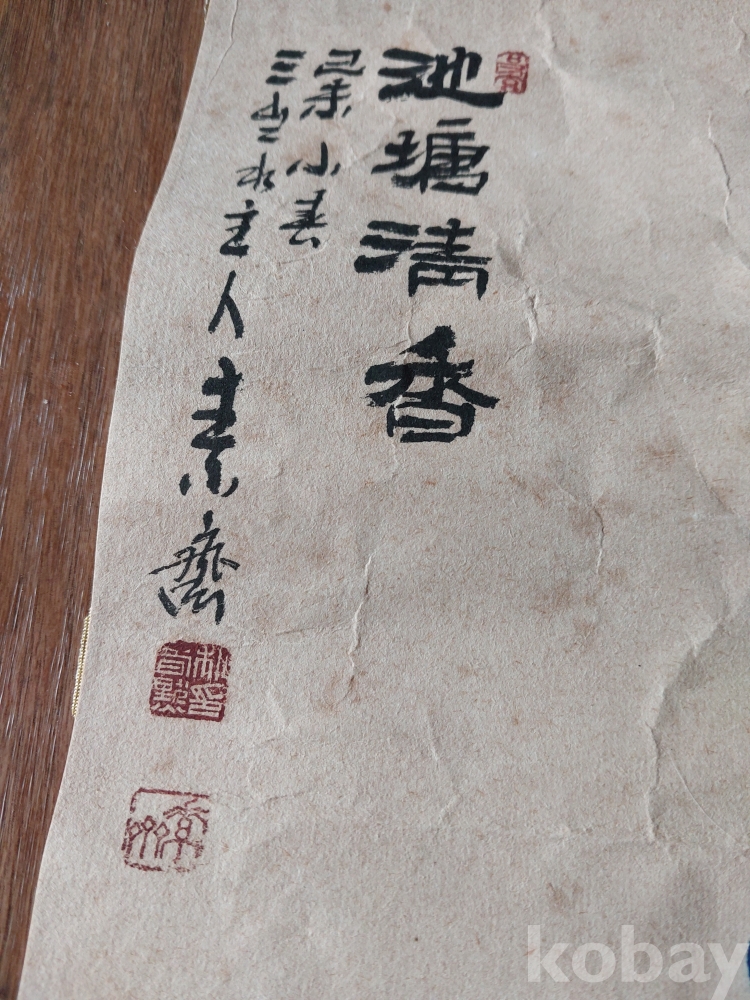 池塘清香
己未小春
三山二水主人素齋
kobay